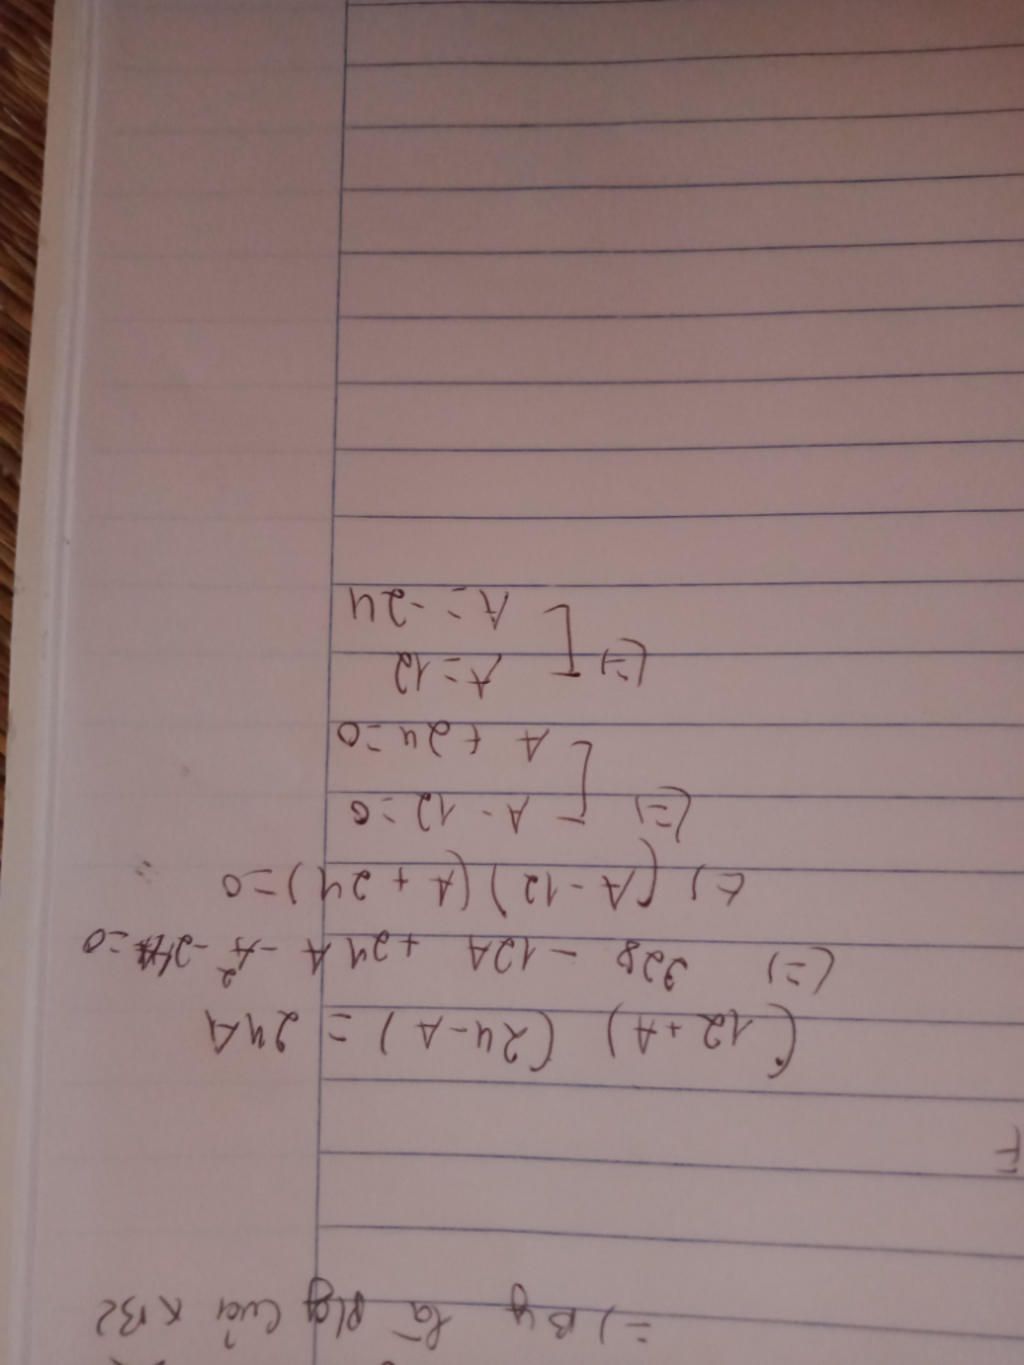 =) By là plg của xB2
F
(12+A) (24-A) = 24A
(=) 328 - 12A + 24A - A² - 24A=0
(=) (A-12)(A+24)=0
(=) [ A-12=0
A+24=0
(=) [ A=12
A=-24